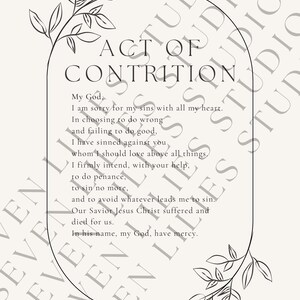 ACT OF
CONTRITION
My God,
I am sorry for my sins with all my heart.
In choosing to do wrong
and failing to do good,
I have sinned against you
whom I should love above all things.
I firmly intend, with your help,
to do penance,
to sin no more,
and to avoid whatever leads me to sin.
Our Savior Jesus Christ suffered and
died for us.
In his name, my God, have mercy.
SEVEN LILIES STUDIO
SEVEN LILIES STUDIO
SEVEN LILIES STUDIO